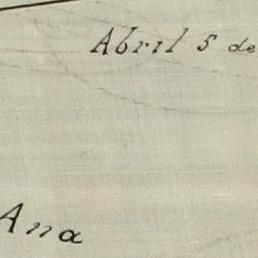 Abril 5 de
Ana